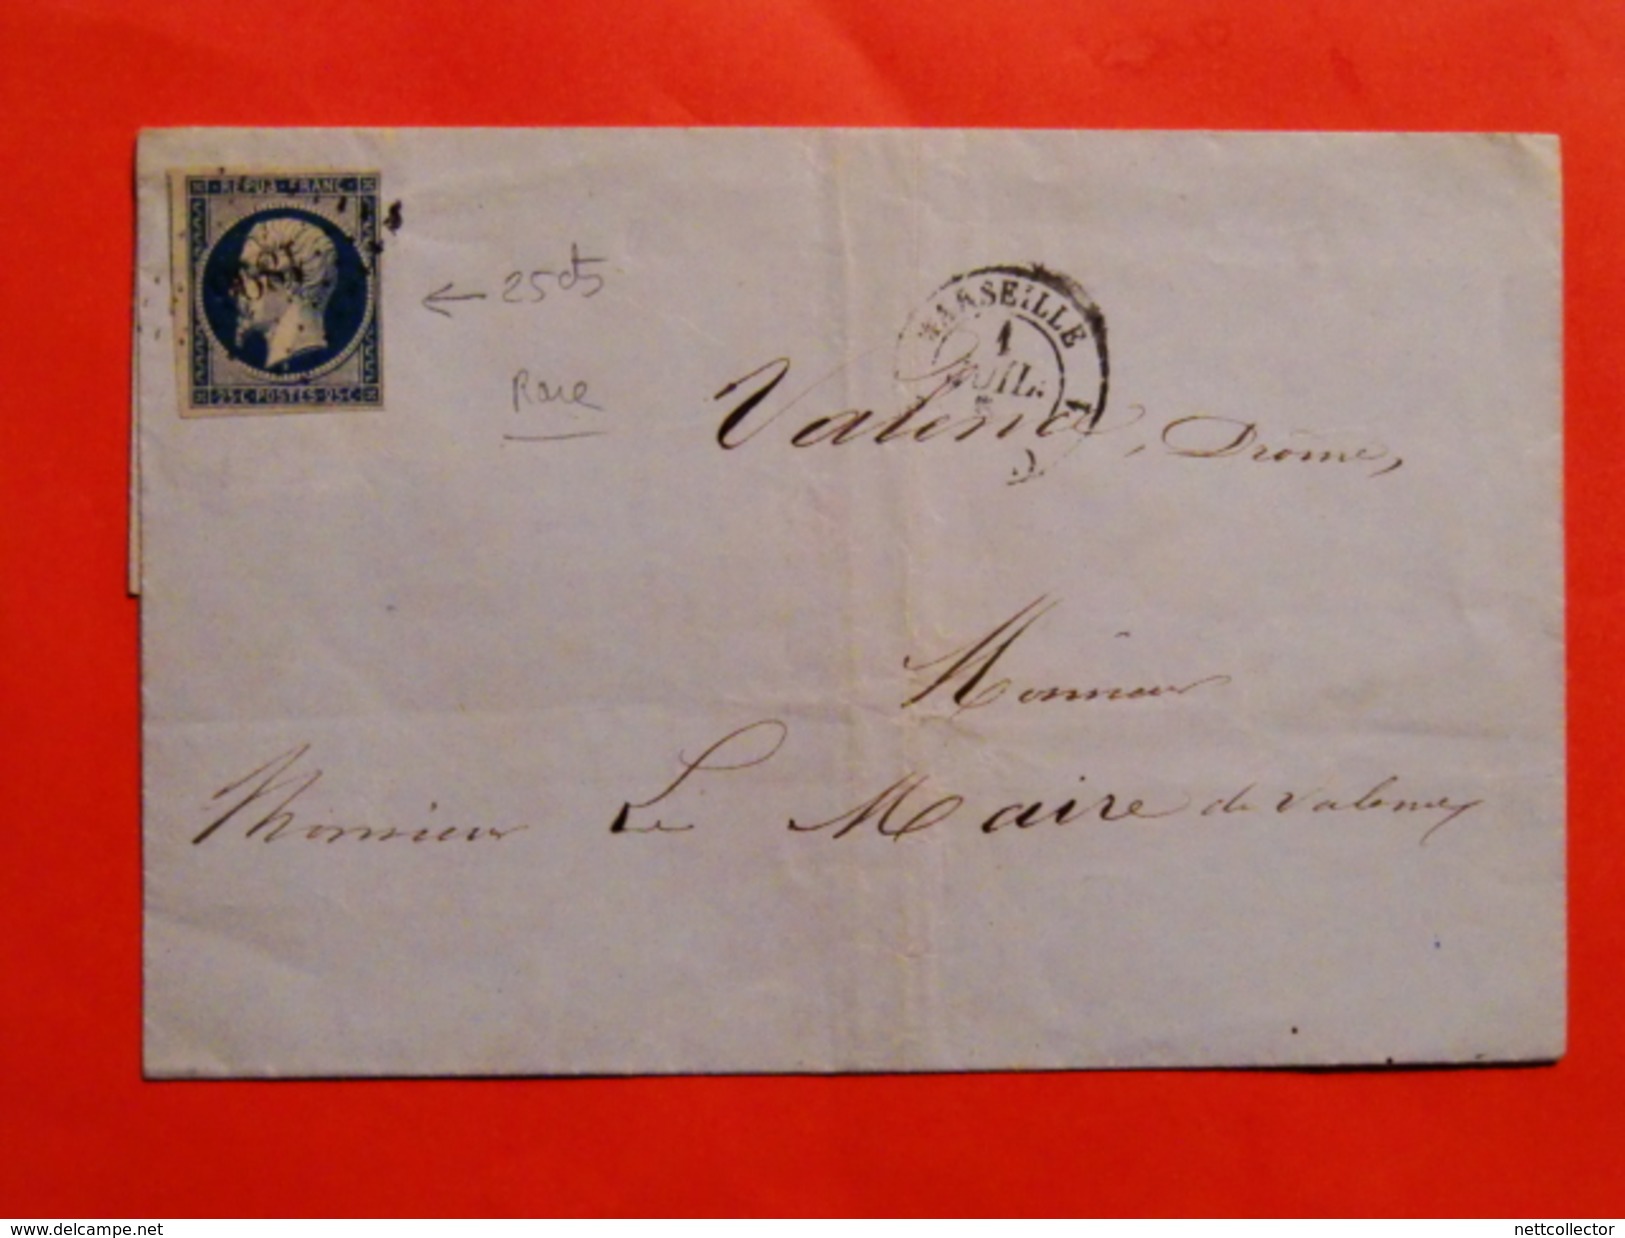 · REPUB · FRANC ·
25 · C · POSTES · 25 · C ·
← 25 cts
Rare
MARSEILLE
1
JUIL.
1
Valence, Drôme,
Monsieur
Monsieur Le Maire de Valence
www.delcampe.net
nettcollector